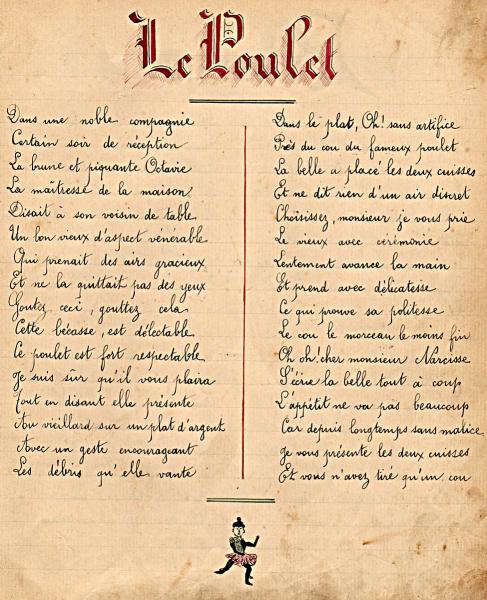 Le Poulet
Dans une noble compagnie
Certain soir de réception
La brune et piquante Octavie
La maîtresse de la maison
Disait à son voisin de table
Un bon vieux d'aspect vénérable
Qui prenait des airs gracieux
Et ne la quittait pas des yeux
Goutez ceci, gouttez cela
Cette bécasse, est délectable
Ce poulet est fort respectable
Je suis sûr qu'il vous plaira
Tout en disant elle présente
Au vieillard sur un plat d'argent
Avec un geste encourageant
Les débris qu'elle vante
Dans le plat, Oh! sans artifice
Près du cou du fameux poulet
La belle a placé les deux cuisses
Et ne dit rien d'un air discret
Choisissez, monsieur je vous prie
Le vieux avec cérémonie
Lentement avance la main
Et prend avec délicatesse
Ce qui prouve sa politesse
Le cou le morceau le moins fin
Oh oh! cher monsieur Narcisse
S'écrie la belle tout à coup
L'appétit ne va pas beaucoup
Car depuis longtemps sans malice
Je vous présente les deux cuisses
Et vous n'avez tiré qu'un cou